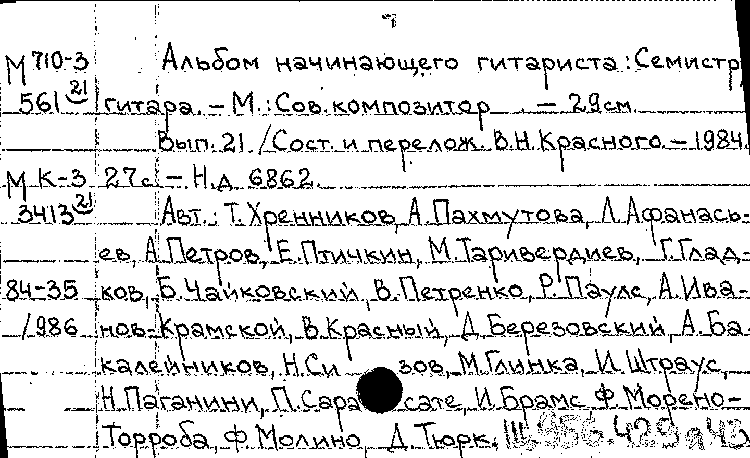 М 710-3 Альбом начинающего гитариста: Семистр.
561 21 гитара. – М.: Сов. композитор – 29см.
Вып. 21. / Сост. и перелож. В.Н. Красного. – 1984.
М К-3 27с. – Н.д. 6862.
3413 21 Авт.: Т. Хренников, А. Пахмутова, Л. Афанась-
ев, А. Петров, Е. Птичкин, М. Таривердиев, Г. Глад-
84-35 ков, Б. Чайковский, В. Петренко, Р. Паулс, А. Ива-
/986 нов-Крамской, В. Красный, Д. Березовский, А. Ба-
калейников, Н. Сизов, М. Глинка, И. Штраус,
Н. Паганини, П. Сарасате, И. Брамс, Ф. Морено-
Торроба, Ф. Молино, Д. Тюрк. Ш5.956.429а43